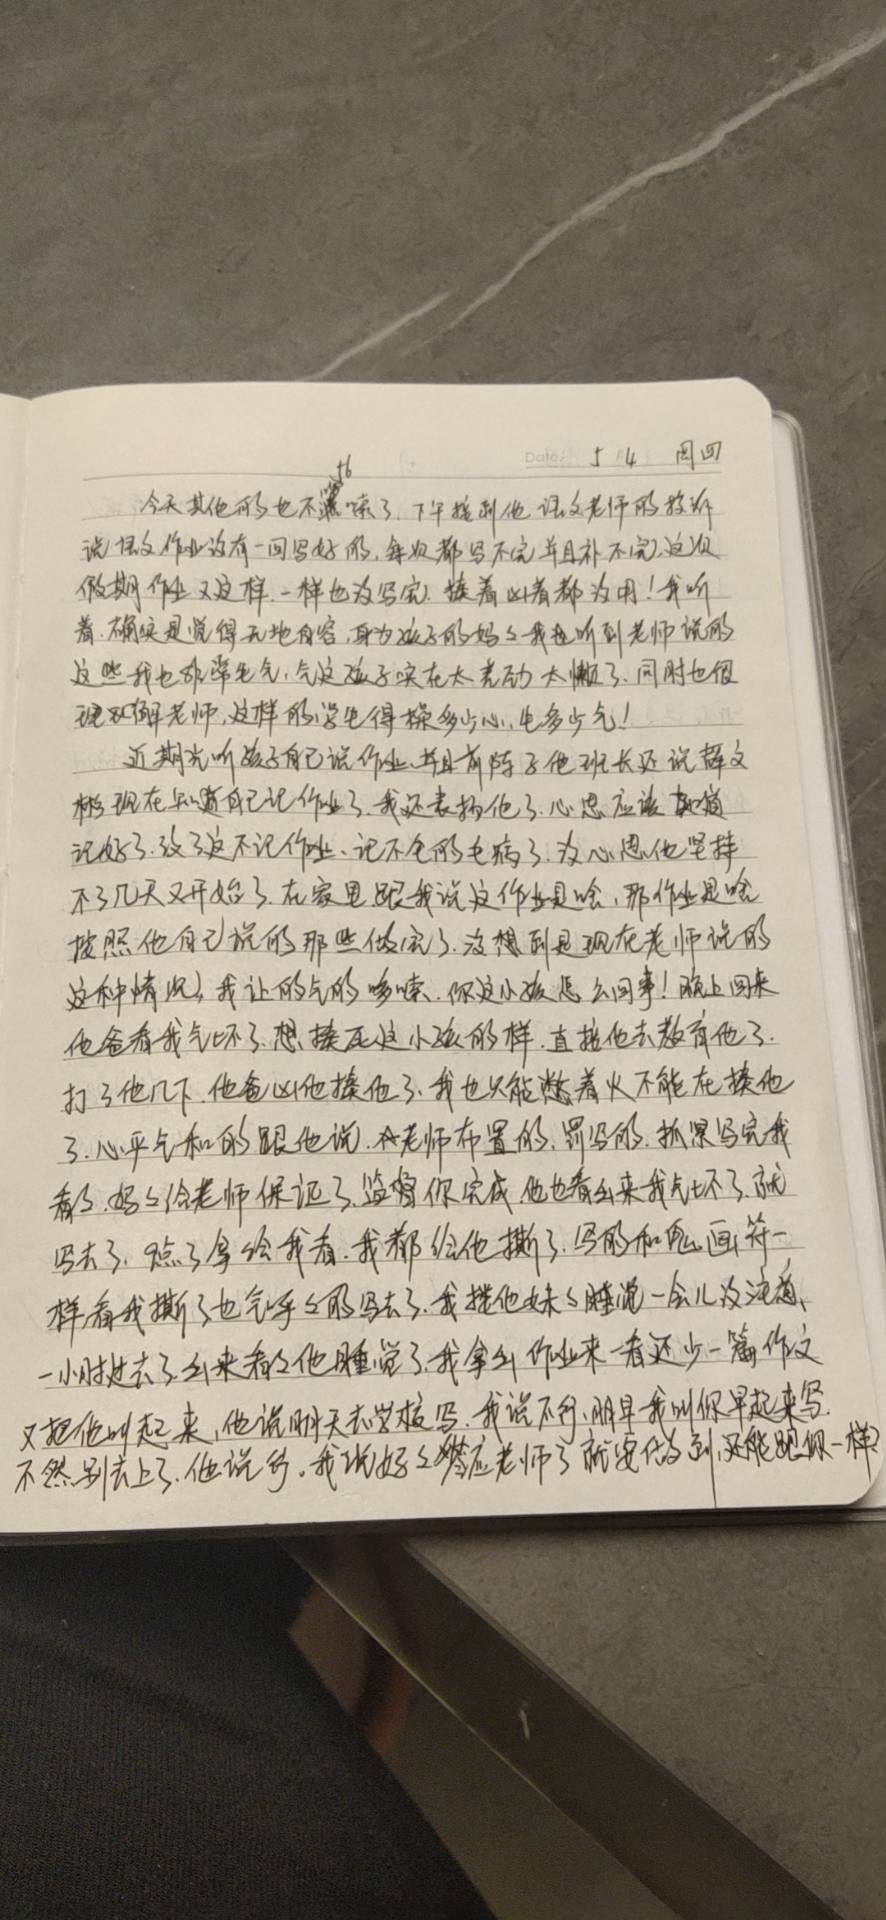 Date: 5 4 周四
今天其他的也不啰嗦了.下午接到他语文老师的投诉
说语文作业没有一回写好的,每次都写不完并且补不完,这次
假期作业又这样.一样也没写完.揍着凶着都没用!我听
着.确实是觉得无地自容,身为孩子的妈々我在听到老师说的
这些我也非常生气,气这孩子实在太 太懒了.同时也很
理解老师,这样的学生得操多少心,生多少气!
近期光听孩子自己说作业、并且前阵子他班长还说薛文
彬现在知道自己记作业了.我还表扬他了.心思应该知道
记好了.改了这不记作业、记不全的毛病了.没心思他坚持
不了几天又开始了.在家里跟我说这作业是啥,那作业是啥
按照他自己说的那些做完了.没想到是现在老师说的
这种情况,我让的气的哆嗦.你这小孩怎么回事!晚上回来
他爸看我气坏了.想揍死这小孩的样.直接他去教育他了.
打了他几下.他爸凶他揍他了.我也只能憋着火不能在揍他
了.心平气和的跟他说.老师布置的,罚写的.抓紧写完我
看々.妈々给老师保证了.监督你完成.他也看出来我气坏了.就
写去了.9点了拿给我看.我都给他撕了.写的和鬼画符一
样,看我撕了也气呼々的写去了.我搂他妹々睡觉一会儿没注意,
一小时过去了.出来看々他睡觉了.我拿出作业来一看还少一篇作文
又把他叫起来,他说明天去学校写.我说不行,明早我叫你早起来写.
不然别去上了.他说行.我说好々答应老师了就要做到,还能跟你一样?